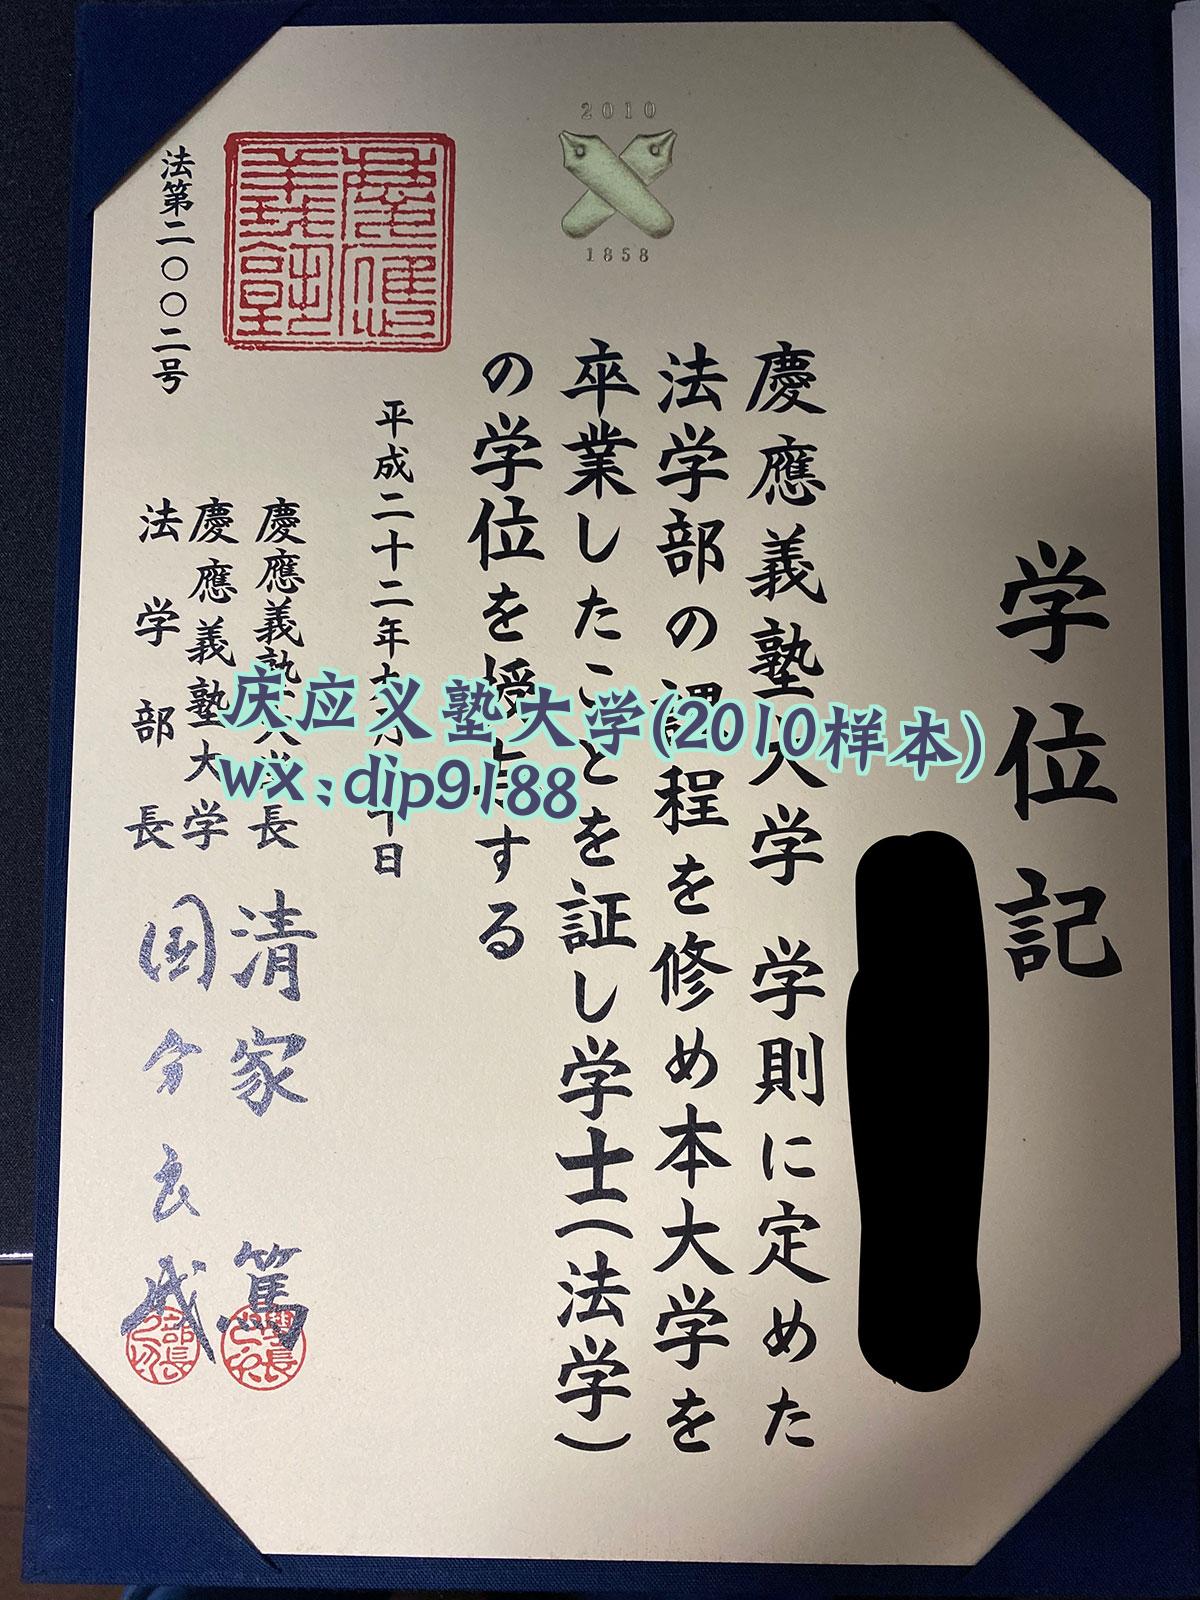 2010
1858
学位記
慶應義塾大学 学則に定めた
法学部の課程を修め本大学を
卒業したことを証し学士(法学)
の学位を授与する
平成二十二年 日
慶應義塾大学長 清家 篤
慶應義塾大学
法学部長 国分良成
法第二〇〇二号
慶應義塾
學長之印
部長之印
庆应义塾大学(2010样本)
wx:dip9188